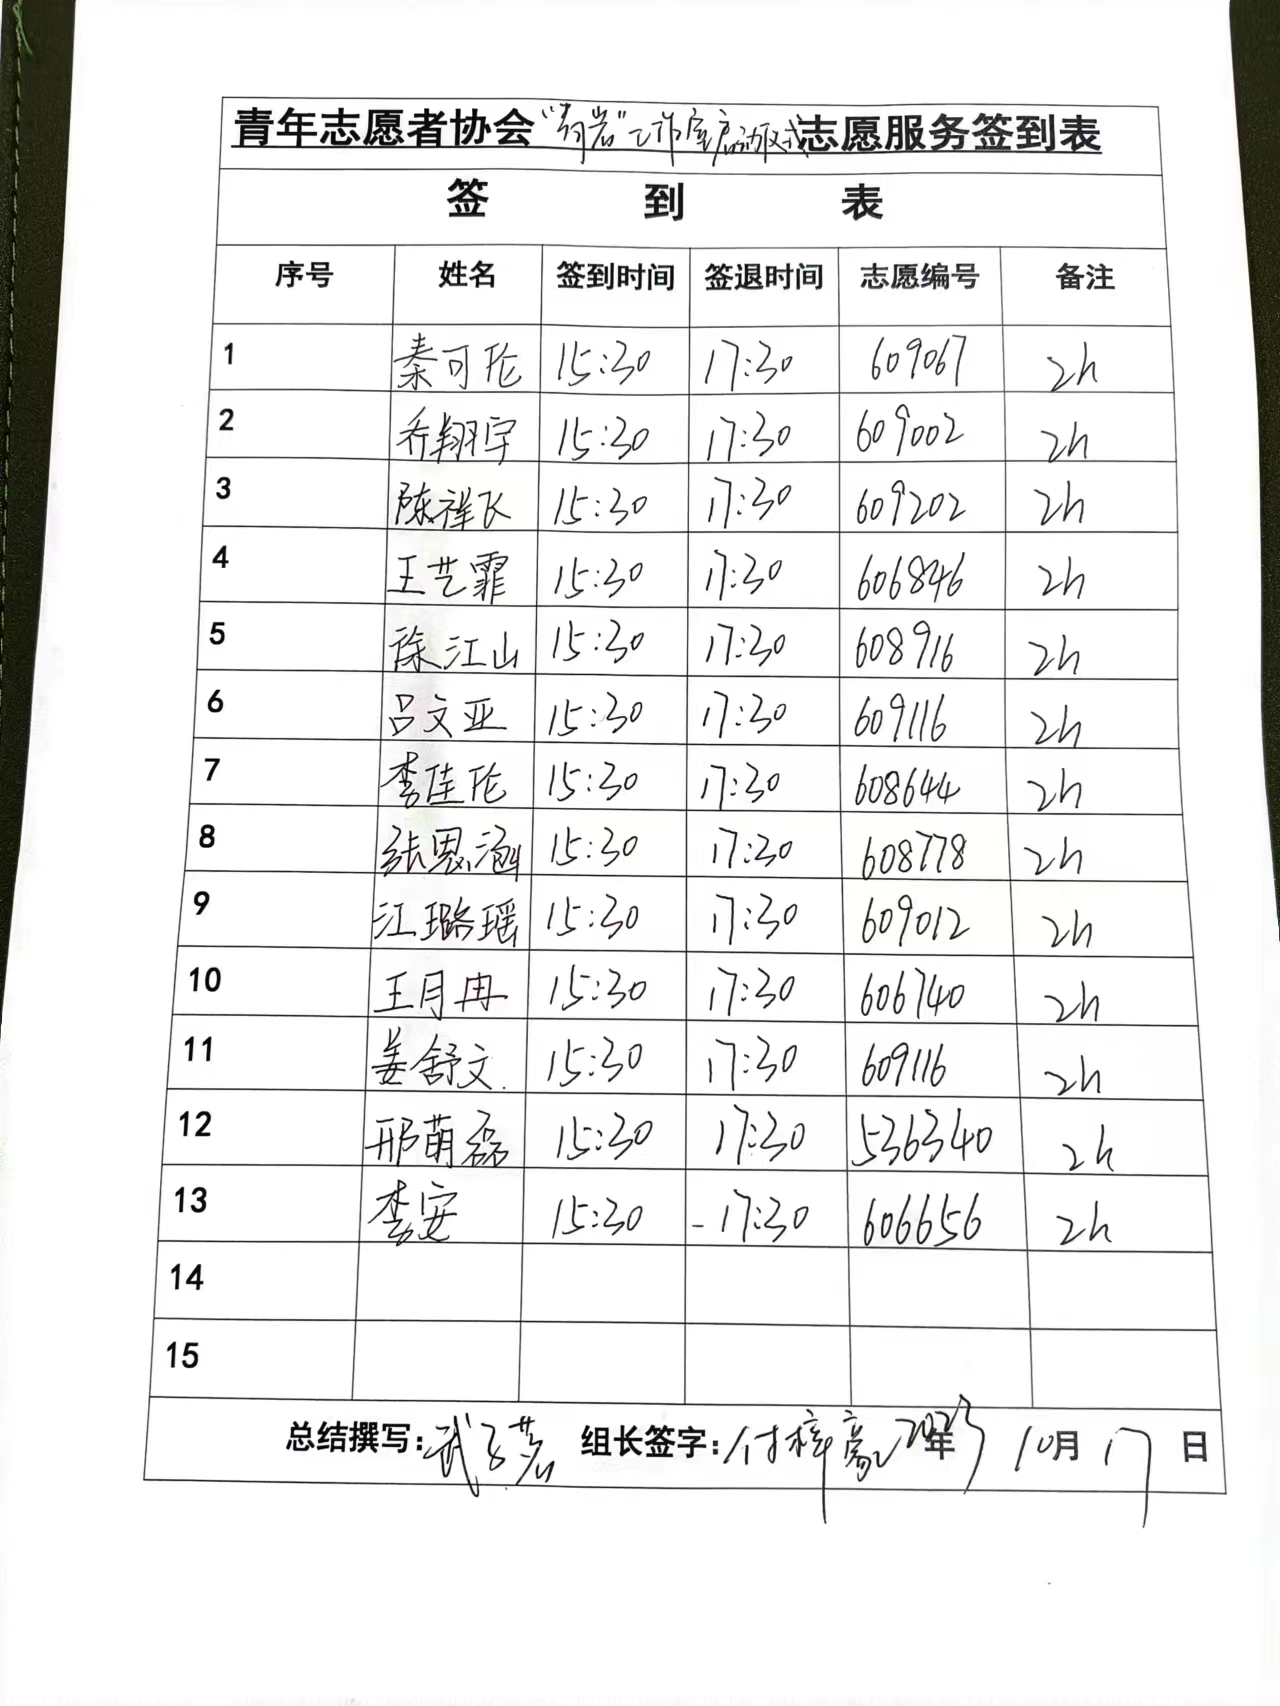 青年志愿者协会“青岩”工作室启动仪式志愿服务签到表
签 到 表
序号 姓名 签到时间 签退时间 志愿编号 备注
1 秦可伦 15:30 17:30 609067 2h
2 乔翔宇 15:30 17:30 609002 2h
3 陈祥飞 15:30 17:30 609202 2h
4 王艺霏 15:30 17:30 606846 2h
5 徐江山 15:30 17:30 608916 2h
6 吕文亚 15:30 17:30 609116 2h
7 李佳伦 15:30 17:30 608644 2h
8 张思涵 15:30 17:30 608778 2h
9 江璐瑶 15:30 17:30 609012 2h
10 王月冉 15:30 17:30 606740 2h
11 姜舒文 15:30 17:30 609116 2h
12 邢萌磊 15:30 17:30 536340 2h
13 李安 15:30 17:30 606656 2h
14
15
总结撰写:武子茗 组长签字:付梓豪 2023年 10月 17日